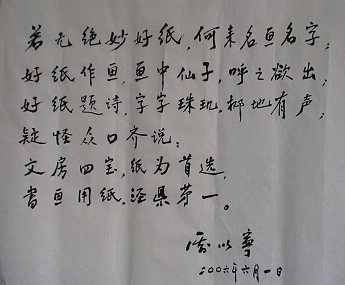 若无绝妙好纸，何来名画名字；
好纸作画，画中仙子，呼之欲出；
好纸题诗，字字珠玑，掷地有声；
疑怪众口齐说：
文房四宝，纸为首选，
书画用纸，泾县第一。
二〇〇六年六月一日